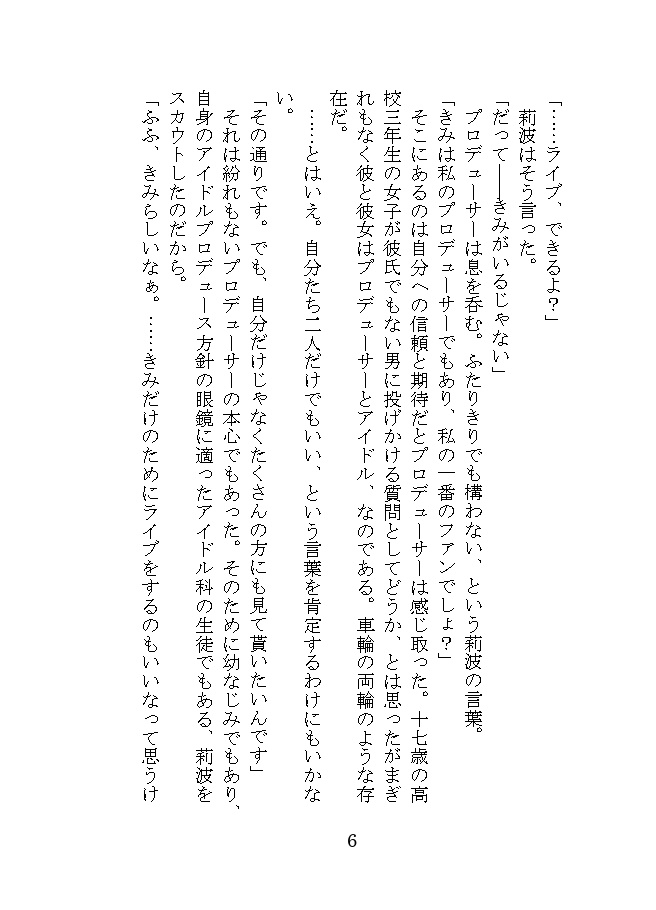 「……ライブ、できるよ？」
莉波はそう言った。
「だって――きみがいるじゃない」
プロデューサーは息を呑む。ふたりきりでも構わない、という莉波の言葉。
「きみは私のプロデューサーでもあり、私の一番のファンでしょ？」
そこにあるのは自分への信頼と期待だとプロデューサーは感じ取った。十七歳の高
校三年生の女子が彼氏でもない男に投げかける質問としてどうか、とは思ったがまぎ
れもなく彼と彼女はプロデューサーとアイドル、なのである。車輪の両輪のような存
在だ。
……とはいえ。自分たち二人だけでもいい、という言葉を肯定するわけにもいかな
い。
「その通りです。でも、自分だけじゃなくたくさんの方にも見て貰いたいんです」
それは紛れもないプロデューサーの本心でもあった。そのために幼なじみでもあり、
自身のアイドルプロデュース方針の眼鏡に適ったアイドル科の生徒でもある、莉波を
スカウトしたのだから。
「ふふ、きみらしいなぁ。……きみだけのためにライブをするのもいいなって思うけ
6